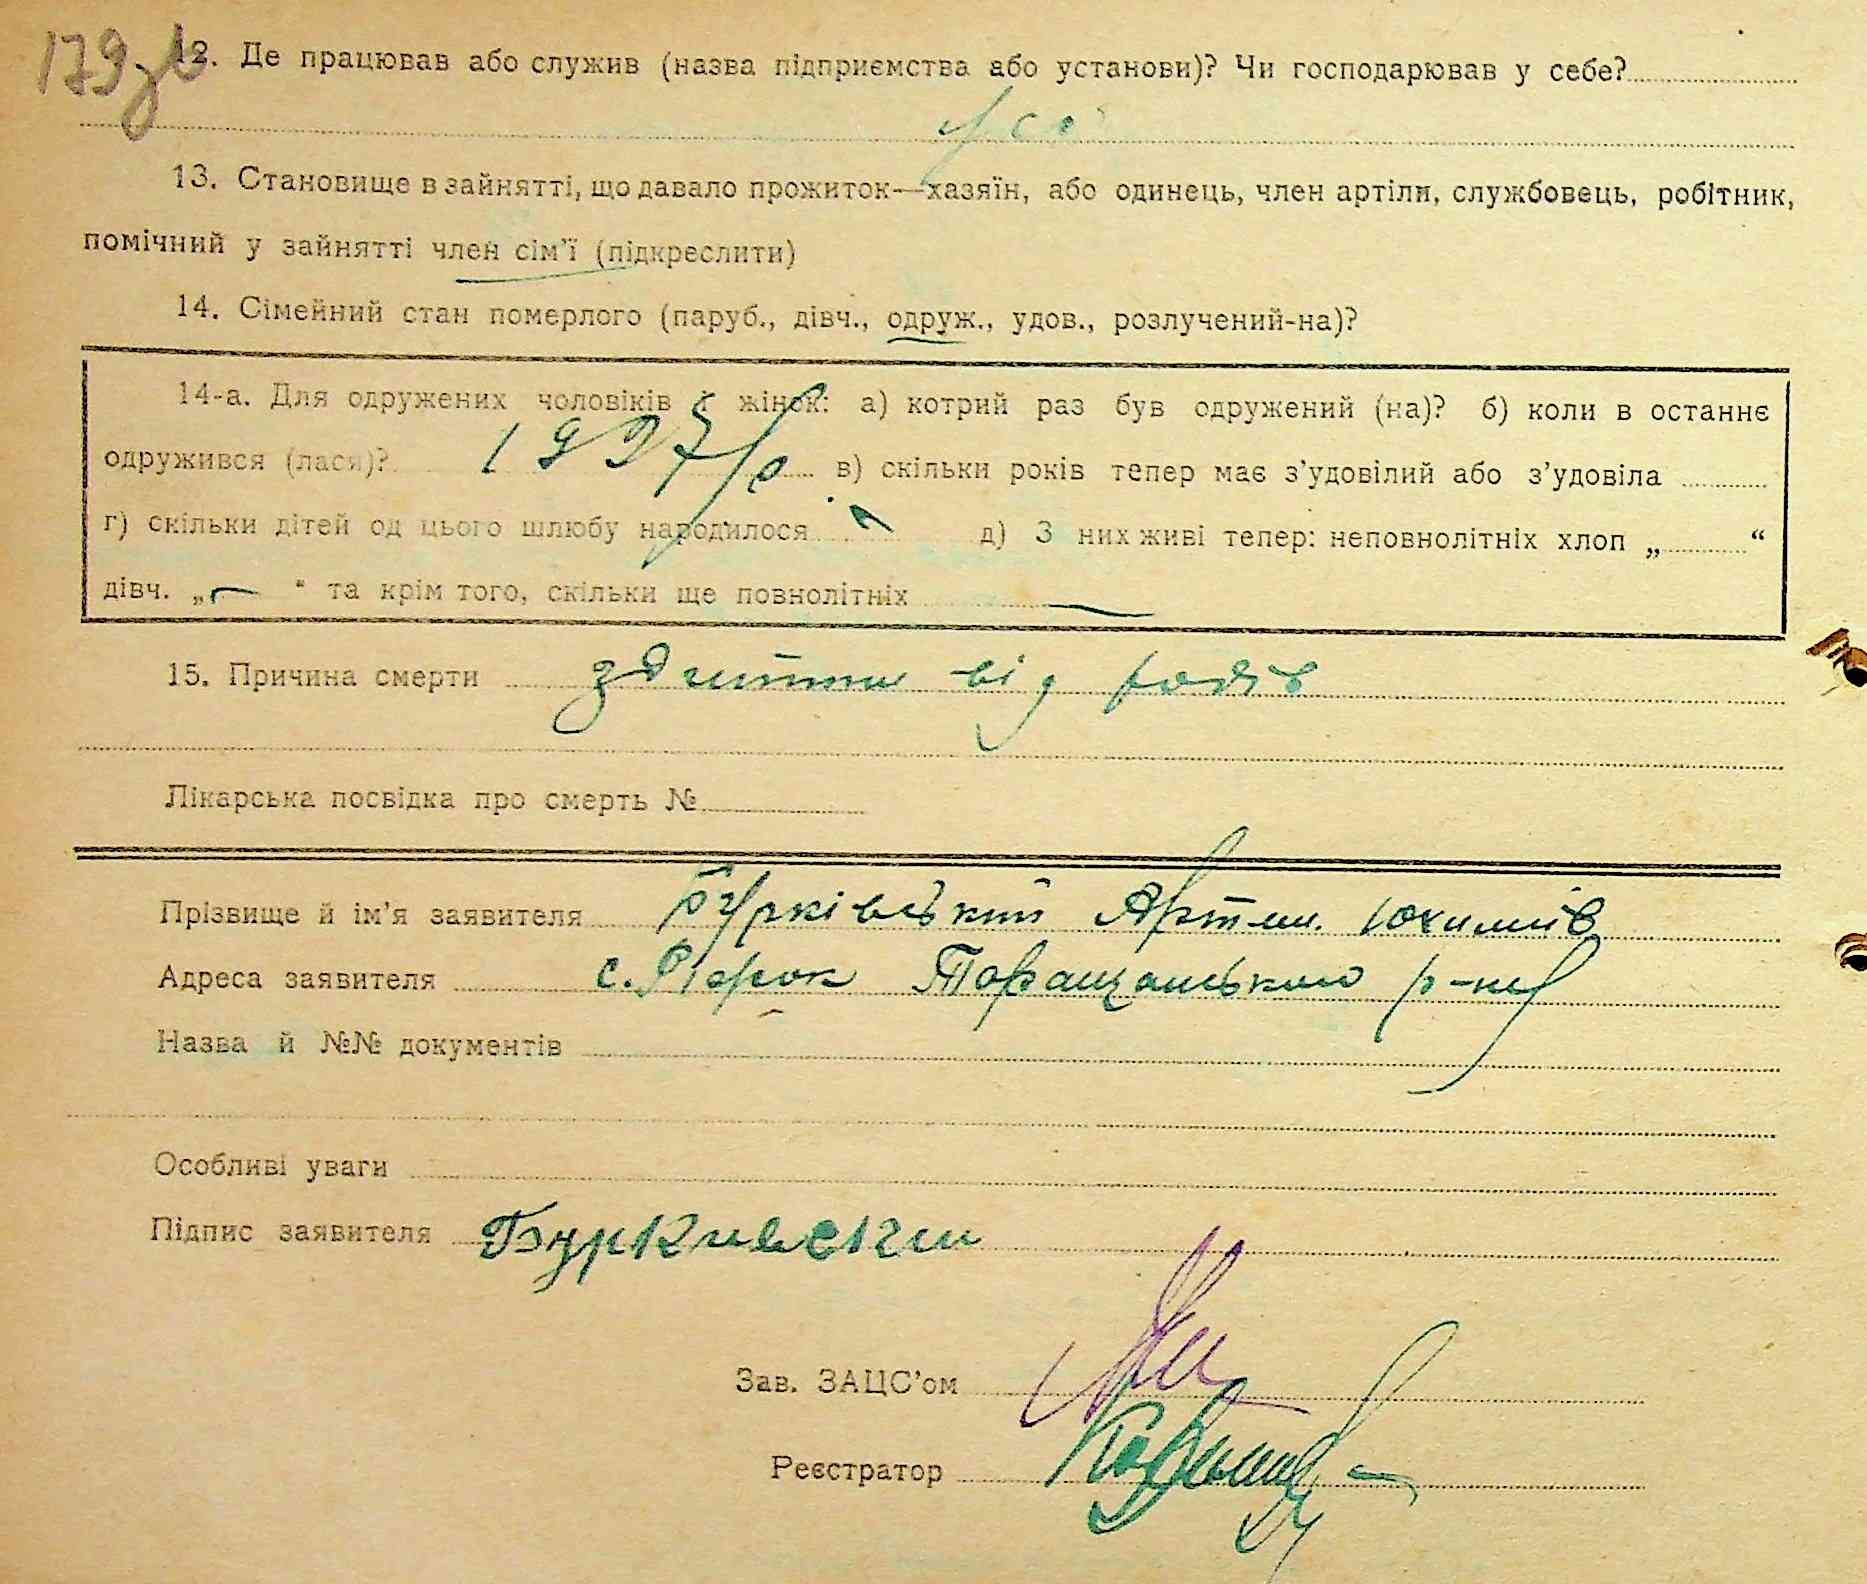 179зв
12. Де працював або служив (назва підприємства або установи)? Чи господарював у себе?
у себе
13. Становище в зайнятті, що давало прожиток—хазяїн, або одинець, член артіли, службовець, робітник,
помічний у зайнятті член сім'ї (підкреслити)
14. Сімейний стан померлого (паруб., дівч., одруж., удов., розлучений-на)?
14-а. Для одружених чоловіків і жінок: а) котрий раз був одружений (на)? б) коли в останнє
одружився (лася)? 1927 р. в) скільки років тепер має з'удовілий або з'удовіла
г) скільки дітей од цього шлюбу народилося д) З них живі тепер: неповнолітніх хлоп „ “
дівч. „— “ та крім того, скільки ще повнолітніх —
15. Причина смерти від родів
Лікарська посвідка про смерть №
Прізвище й ім'я заявителя Бурківський Артем. Юхимів
Адреса заявителя с. Таращанського р-ну
Назва й №№ документів
Особливі уваги
Підпис заявителя Буркивский
Зав. ЗАЦС'ом
Реєстратор